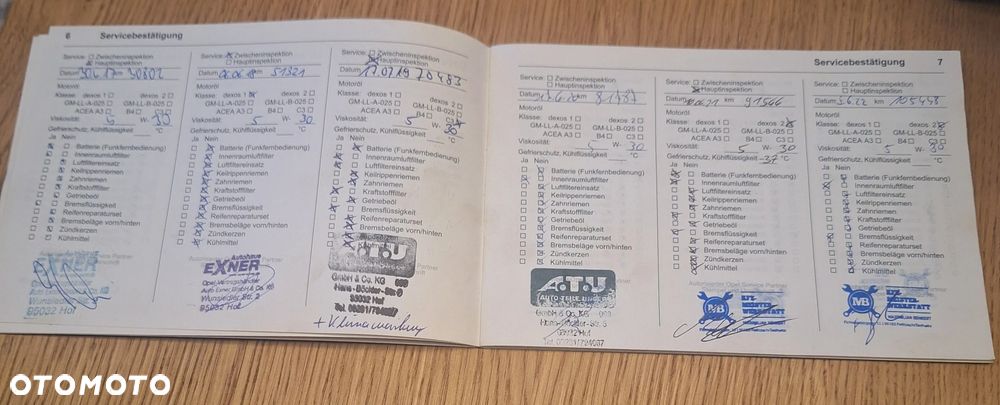 6 Servicebestätigung
Service: Zwischeninspektion
Hauptinspektion
Datum km 30802
Motoröl
Klasse: dexos 1 dexos 2
GM-LL-A-025 GM-LL-B-025
ACEA A3 B4 C3
Viskosität: 5 W- 30
Gefrierschutz, Kühlflüssigkeit °C
Ja Nein
Batterie (Funkfernbedienung)
Innenraumluftfilter
Luftfiltereinsatz
Keilrippenriemen
Zahnriemen
Kraftstofffilter
Getriebeöl
Bremsflüssigkeit
Reifenreparaturset
Bremsbeläge vorn/hinten
Zündkerzen
Kühlmittel
EXNER
Wunsiedler
95032 Hof
Service: Zwischeninspektion
Hauptinspektion
Datum km 51321
Motoröl
Klasse: dexos 1 dexos 2
GM-LL-A-025 GM-LL-B-025
ACEA A3 B4 C3
Viskosität: 5 W- 30
Gefrierschutz, Kühlflüssigkeit °C
Ja Nein
Batterie (Funkfernbedienung)
Innenraumluftfilter
Luftfiltereinsatz
Keilrippenriemen
Zahnriemen
Kraftstofffilter
Getriebeöl
Bremsflüssigkeit
Reifenreparaturset
Bremsbeläge vorn/hinten
Zündkerzen
Kühlmittel
Autohaus
EXNER
Opel-Vertragshändler
Auto Exner GmbH & Co. KG
Wunsiedler Str. 2
95032 Hof
Service: Zwischeninspektion
Hauptinspektion
Datum 17.07.19 70483
Motoröl
Klasse: dexos 1 dexos 2
GM-LL-A-025 GM-LL-B-025
ACEA A3 B4 C3
Viskosität: 5 W- 30
Gefrierschutz, Kühlflüssigkeit °C
Ja Nein
Batterie (Funkfernbedienung)
Innenraumluftfilter
Luftfiltereinsatz
Keilrippenriemen
Zahnriemen
Kraftstofffilter
Getriebeöl
Bremsflüssigkeit
Reifenreparaturset
Bremsbeläge vorn/hinten
A.T.U
GmbH & Co. KG
Hans-Böckler-Str. 6
95032 Hof
Tel. 09281/794087
+ Klimawartung
Servicebestätigung 7
Service: Zwischeninspektion
Hauptinspektion
Datum km 81487
Motoröl
Klasse: dexos 1 dexos 2
GM-LL-A-025 GM-LL-B-025
ACEA A3 B4 C3
Viskosität: 5 W- 30
Gefrierschutz, Kühlflüssigkeit °C
Ja Nein
Batterie (Funkfernbedienung)
Innenraumluftfilter
Luftfiltereinsatz
Keilrippenriemen
Zahnriemen
Kraftstofffilter
Getriebeöl
Bremsflüssigkeit
Reifenreparaturset
Bremsbeläge vorn/hinten
Zündkerzen
Kühlmittel
A.T.U
AUTO-TEILE-UNGER
GmbH & Co. KG
Hans-Böckler-Str. 6
95032 Hof
Tel. 09281/794087
Service: Zwischeninspektion
Hauptinspektion
Datum km 91566
Motoröl
Klasse: dexos 1 dexos 2
GM-LL-A-025 GM-LL-B-025
ACEA A3 B4 C3
Viskosität: 5 W- 30
Gefrierschutz, Kühlflüssigkeit -37 °C
Ja Nein
Batterie (Funkfernbedienung)
Innenraumluftfilter
Luftfiltereinsatz
Keilrippenriemen
Zahnriemen
Kraftstofffilter
Getriebeöl
Bremsflüssigkeit
Reifenreparaturset
Bremsbeläge vorn/hinten
Zündkerzen
Kühlmittel
MB
KFZ-
MEISTER-
WERKSTATT
Service: Zwischeninspektion
Hauptinspektion
Datum km 105448
Motoröl
Klasse: dexos 1 dexos 2
GM-LL-A-025 GM-LL-B-025
ACEA A3 B4 C3
Viskosität: 5 W- 30
Gefrierschutz, Kühlflüssigkeit °C
Ja Nein
Batterie (Funkfernbedienung)
Innenraumluftfilter
Luftfiltereinsatz
Keilrippenriemen
Zahnriemen
Kraftstofffilter
Getriebeöl
Bremsflüssigkeit
Reifenreparaturset
Bremsbeläge vorn/hinten
Zündkerzen
Kühlmittel
MB
KFZ-
MEISTER-
WERKSTATT
OTOMOTO